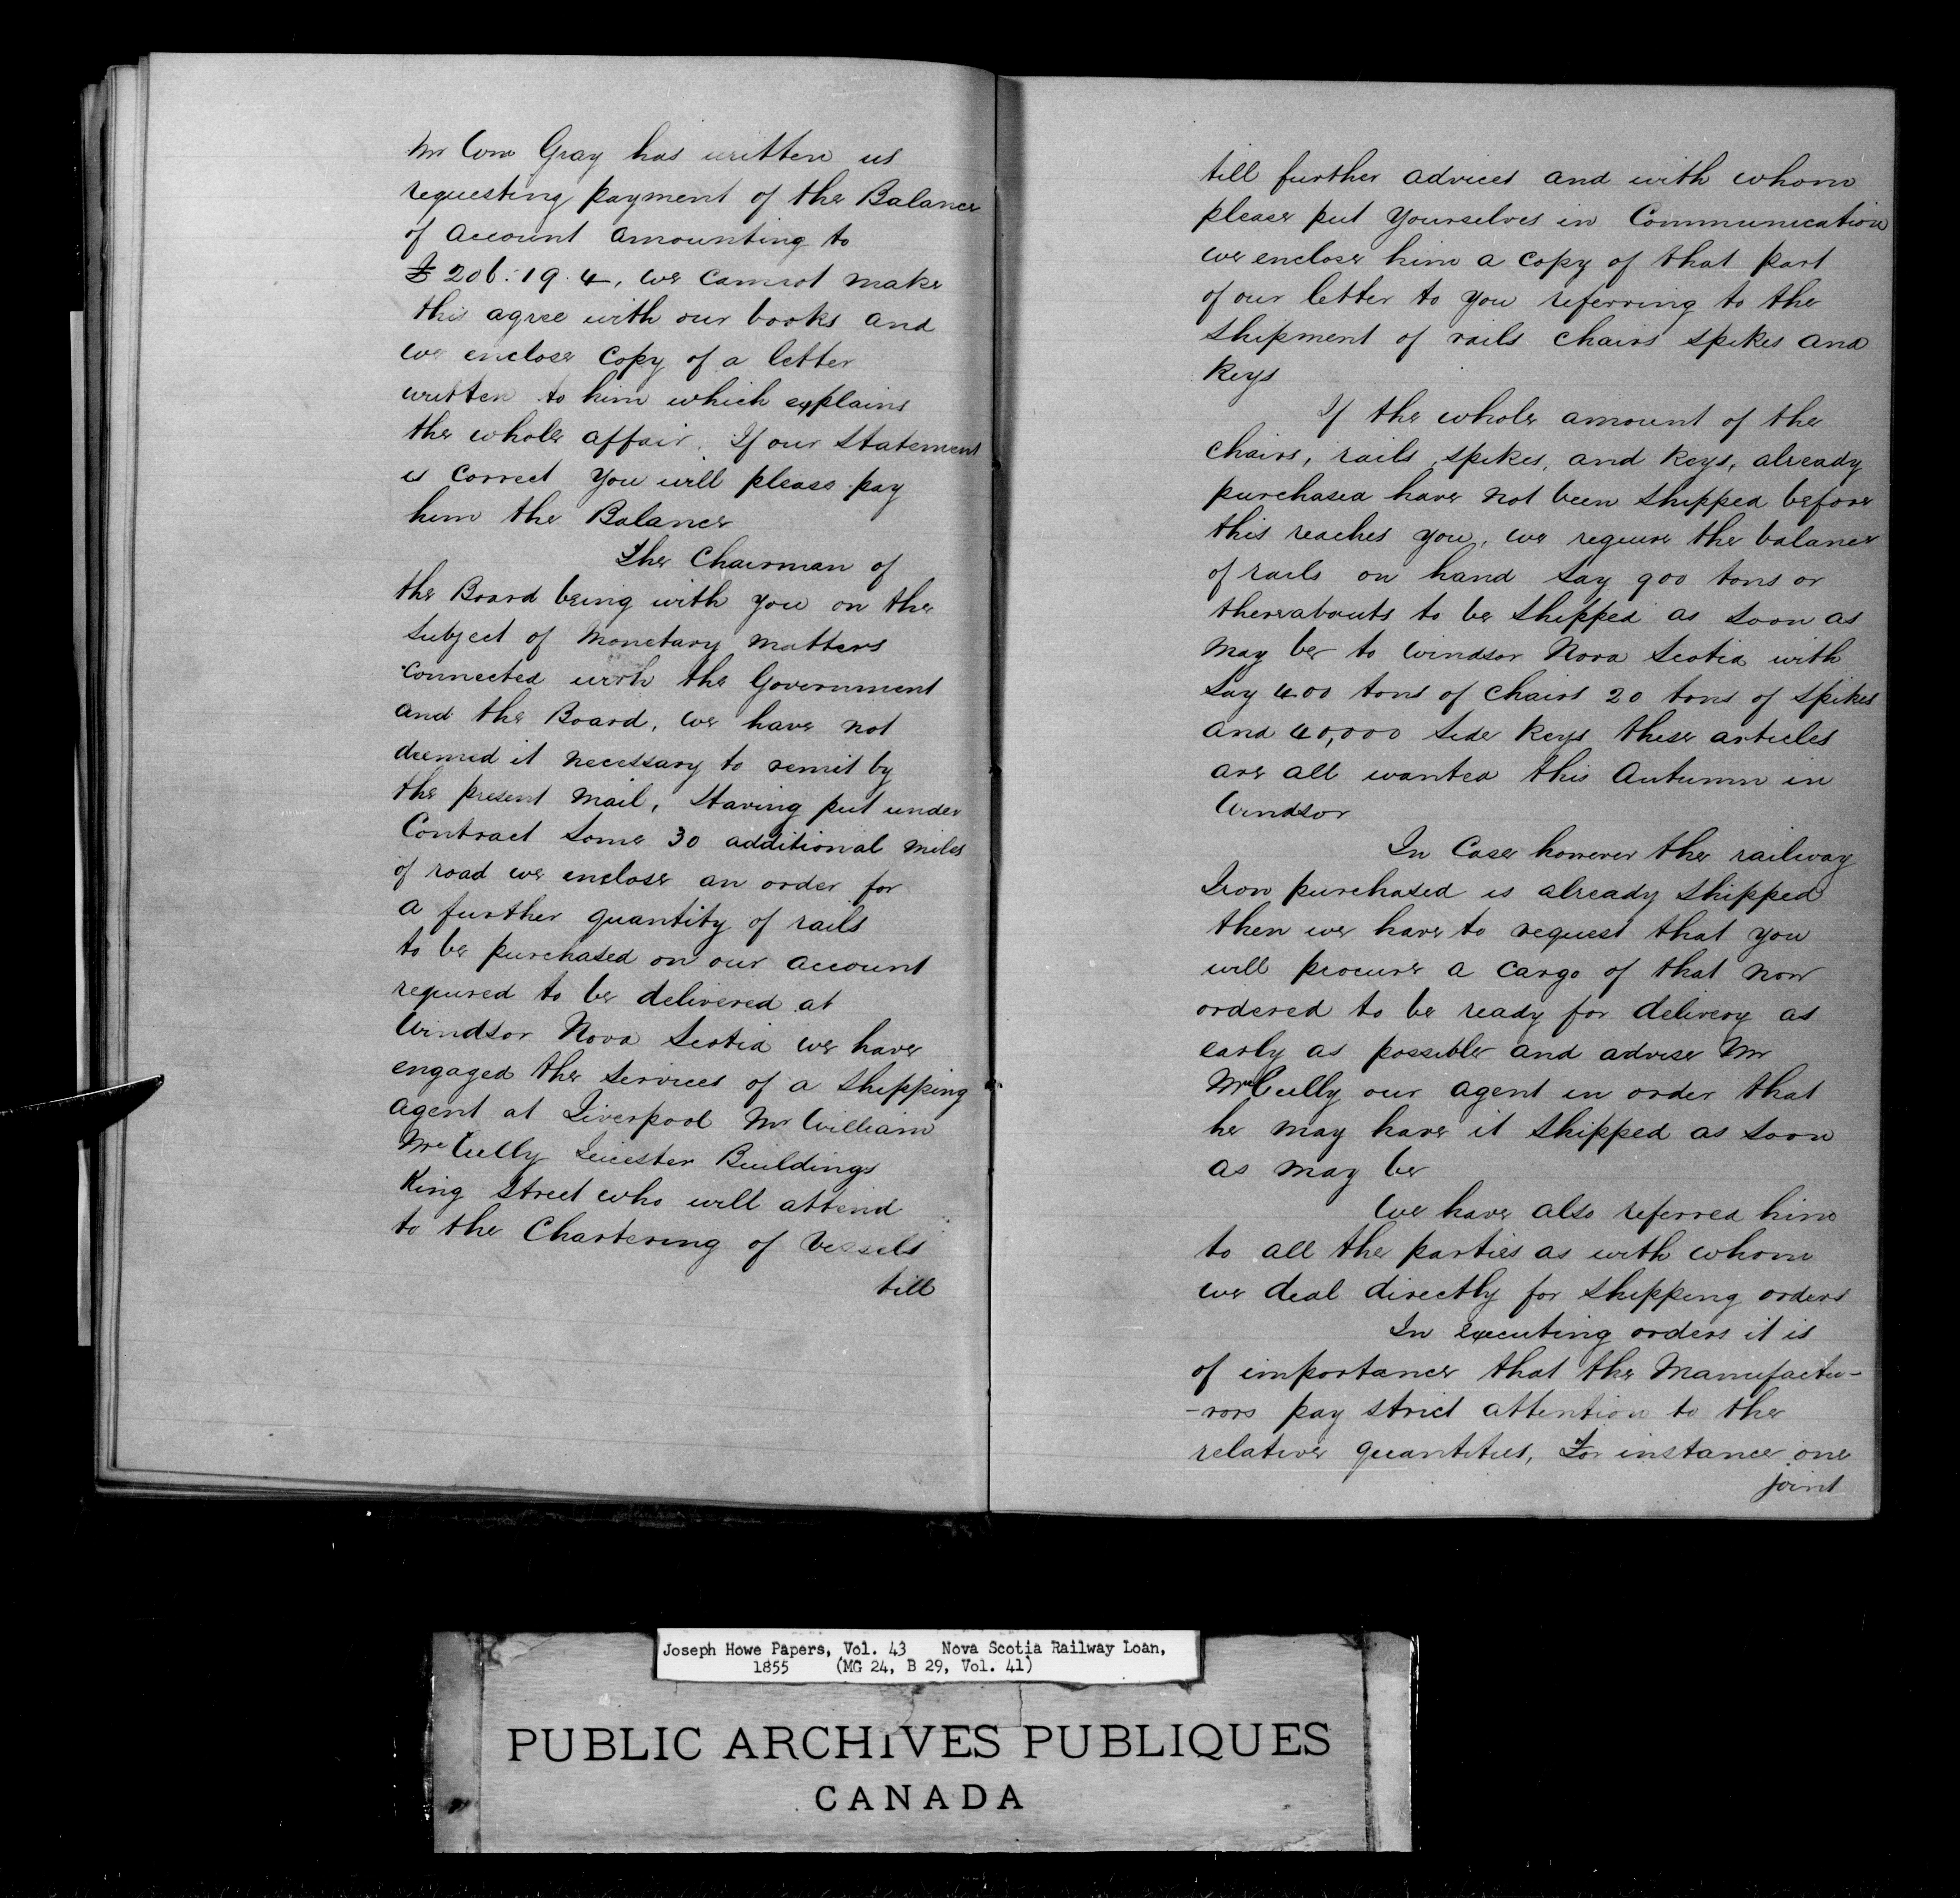 Mr Wm Gray has written us
requesting payment of the Balance
of account amounting to
£ 206:19.4, we cannot make
this agree with our books and
we enclose copy of a letter
written to him which explains
the whole affair. If our Statement
is correct you will please pay
him the Balance
The Chairman of
the Board being with you on the
subject of Monetary Matters
connected with the Government
and the Board, we have not
deemed it necessary to remit by
the present Mail, Having put under
Contract some 30 additional miles
of road we enclose an order for
a further quantity of rails
to be purchased on our account
required to be delivered at
Windsor Nova Scotia we have
engaged the services of a shipping
agent at Liverpool Mr William
McCully Leicester Buildings
King Street who will attend
to the Chartering of Vessels
till
till further advices and with whom
please put yourselves in Communication
we enclose him a copy of that part
of our letter to you referring to the
shipment of rails chairs spikes and
Keys
If the whole amount of the
chairs, rails, spikes, and keys, already
purchased have not been shipped before
this reaches you, we require the balance
of rails on hand say 900 tons or
thereabouts to be shipped as soon as
may be to Windsor Nova Scotia with
say 400 tons of chairs 20 tons of spikes
and 40,000 side keys these articles
are all wanted this Autumn in
Windsor
In Case however the railway
Iron purchased is already shipped
then we have to request that you
will procure a cargo of that now
ordered to be ready for delivery as
early as possible and advise Mr
McCully our agent in order that
he may have it shipped as soon
as may be
We have also referred him
to all the parties as with whom
we deal directly for shipping orders
In executing orders it is
of importance that the Manufactu-
-rors pay strict attention to the
relative quantities, For instance one
joint
Joseph Howe Papers, Vol. 43 Nova Scotia Railway Loan,
1855 (MG 24, B 29, Vol. 41)
PUBLIC ARCHIVES PUBLIQUES
CANADA